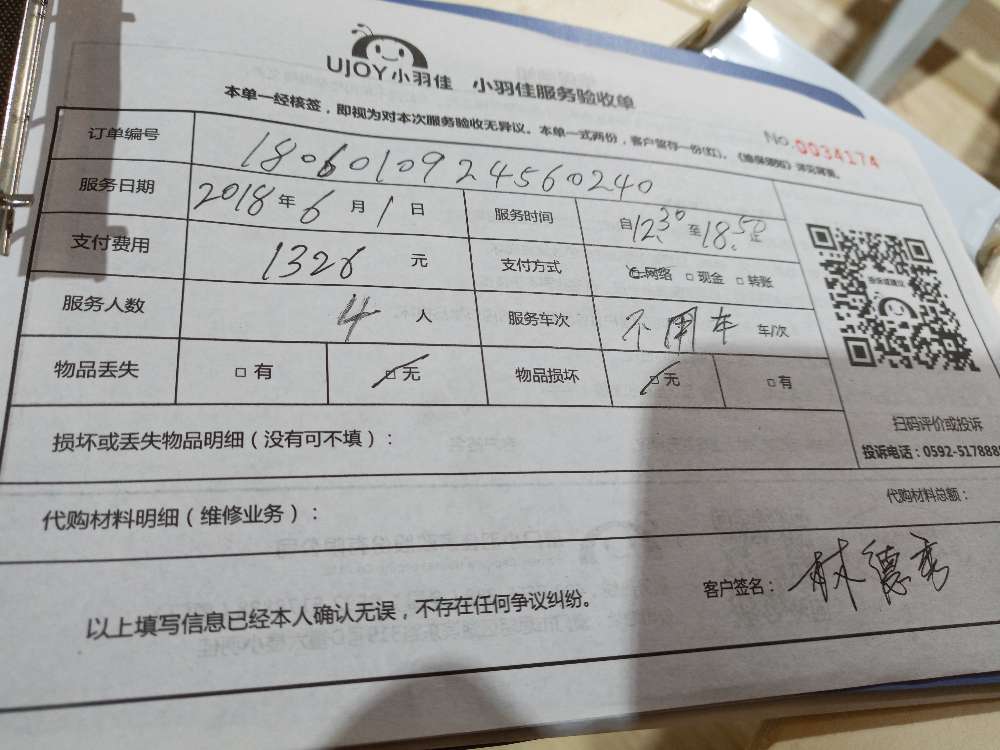 UJOY小羽佳 小羽佳服务验收单
本单一经核签，即视为对本次服务验收无异议。本单一式两份，客户留存一份(红)。《维保须知》详见背面。
No 0034174
订单编号 1806010924560240
服务日期 2018年6月1日 服务时间 自12:30至18:50止
支付费用 1326元 支付方式 网络 □现金 □转账
服务人数 4人 服务车次 不用车 车/次
物品丢失 □有 □无 物品损坏 □无 □有
扫码评价或投诉
投诉电话：0592-517888
损坏或丢失物品明细（没有可不填）：
代购材料总额：
代购材料明细（维修业务）：
客户签名：林德秀
以上填写信息已经本人确认无误，不存在任何争议纠纷。